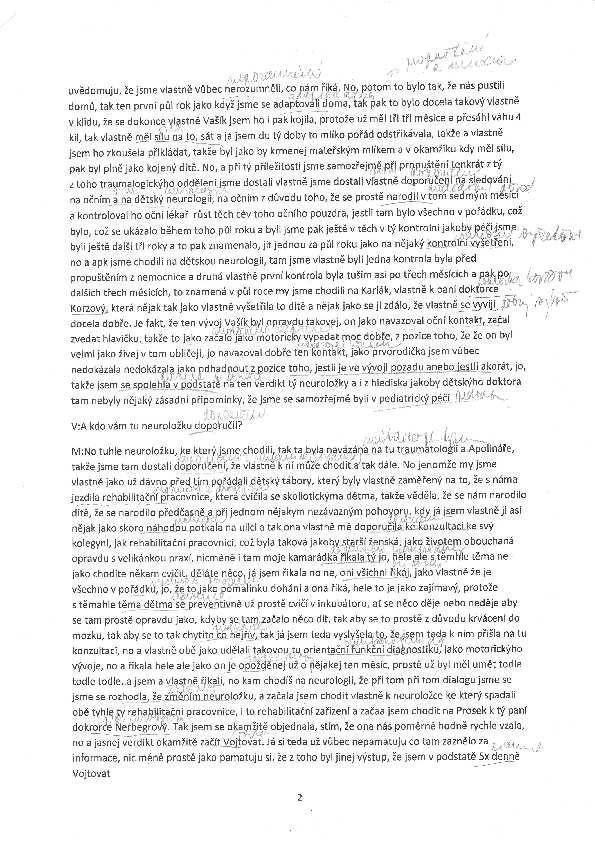 uvědomuju, že jsme vlastně vůbec nerozumněli, co nám říká. No, potom to bylo tak, že nás pustili
domů, tak ten první půl rok jako když jsme se adaptovali doma, tak pak to bylo docela takový vlastně
v klidu, že se dokonce vlastně Vašík jsem ho i pak kojila, protože už měl tři tři měsíce a přesáhl váhu 4
kil, tak vlastně měl sílu na to, sát a já jsem du tý doby to mlíko pořád odstříkávala, takže a vlastně
jsem ho zkoušela přikládat, takže byl jako by krmenej mateřským mlíkem a v okamžiku kdy měl sílu,
pak byl plně jako kojený dítě. No, a při tý příležitosti jsme samozřejmě při propuštění tenkrát z tý
z toho traumalogickýho oddělení jsme dostali vlastně jsme dostali vlastně doporučení na sledování
na očním a na dětský neurologii, na očním z důvodu toho, že se prostě narodil v tom sedmým měsíci
a kontroloval ho oční lékař růst těch cév toho očního pouzdra, jestli tam bylo všechno v pořádku, což
bylo, což se ukázalo během toho půl roku a byli jsme pak ještě v těch v tý kontrolní jakoby péči jsme
byli ještě další tři roky a to pak znamenalo, jít jednou za půl roku jako na nějaký kontrolní vyšetření,
no a apk jsme chodili na dětskou neurologii, tam jsme vlastně byli jedna kontrola byla před
propuštěním z nemocnice a druhá vlastně první kontrola byla tuším asi po třech měsících a pak po
dalších třech měsících, to znamená v půl roce my jsme chodili na Karlák, vlastně k paní doktorce
Korzový, která nějak tak jako vlastně vyšetřila to dítě a nějak jako se jí zdálo, že vlastně se vyvíjí
docela dobře. Je fakt, že ten vývoj Vašík byl opravdu takovej, on jako navazoval oční kontakt, začal
zvedat hlavičku, takže to jako začalo jako motoricky vypadat moc dobře, z pozice toho, že že on byl
velmi jako živej v tom obličeji, jo navazoval dobře ten kontakt, jako prvorodička jsem vůbec
nedokázala nedokázala jako pdhadnout z pozice toho, jestli je ve vývoji pozadu anebo jestli akorát, jo,
takže jsem se spolehla v podstatě na ten verdikt tý neuroložky a i z hlediska jakoby dětského doktora
tam nebyly nějaký zásadní připomínky, že jsme se samozřejmě byli v pediatrický péči
V:A kdo vám tu neuroložku doporučil?
M:No tuhle neuroložku, ke který jsme chodili, tak ta byla navázána na tu traumatologii a Apolináře,
takže jsme tam dostali doporučení, že vlastně k ní může chodit a tak dále. No jenomže my jsme
vlastně jako už dávno před tím pořádali dětský tábory, který byly vlastně zaměřený na to, že s náma
jezdila rehabilitační pracovnice, která cvičila se skoliotickýma dětma, takže věděla, že se nám narodilo
dítě, že se narodilo předčasně a při jednom nějakym nezávazným pohovoru, kdy já jsem vlastně ji asi
nějak jako skoro náhodou potkala na ulici a tak ona vlastně mě doporučila ke konzultaci ke svý
kolegyni, jak rehabilitační pracovnici, což byla taková jakoby starší ženská, jako životem obouchaná
opravdu s velikánkou praxí, nicméně i tam moje kamarádka říkala tý jo, hele ale s těmhle těma ne
jako chodíte někam cvičit, děláte něco, já jsem říkala no ne, oni všichni říkaj, jako vlastně že je
všechno v pořádku, jo, že to jako pomalinku dohání a ona říká, hele to je jako zajímavý, protože
s těmahle těma dětma se preventivně už prostě cvičí v inkubátoru, ať se něco děje nebo neděje aby
se tam prostě opravdu jako, kdyby se tam začalo něco dít, tak aby se to prostě z důvodu krvácení do
mozku, tak aby se to tak chytito co hejny, tak já jsem teda vyslyšela to, že jsem teda k nim přišla na tu
konzultaci, no a vlastně obě jako udělali takovou tu orientační funkční diagnostiku, jako motorickýho
vývoje, no a říkala hele ale jako on je opožděnej už o nějakej ten měsíc, prostě už byl měl umět todle
todle todle, a jsem a vlastně říkali, no kam chodíš na neurologii, že při tom při tom dialogu jsme se
jsme se rozhodla, že změním neuroložku, a začala jsem chodit vlastně k neuroložce ke který spadali
obě tyhle ty rehabilitační pracovnice, i to rehabilitační zařízení a začaa jsem chodit na Prosek k tý paní
dokrorce Nerbegrový. Tak jsem se okamžitě objednala, stím, že ona nás poměrně hodně rychle vzala,
no a jasnej verdikt okamžitě začít Vojtovat. Já si teda už vůbec nepamatuju co tam zaznělo za
informace, nic méně prostě jako pamatuju si, že z toho byl jinej výstup, že jsem v podstatě 5x denně
Vojtovat
2